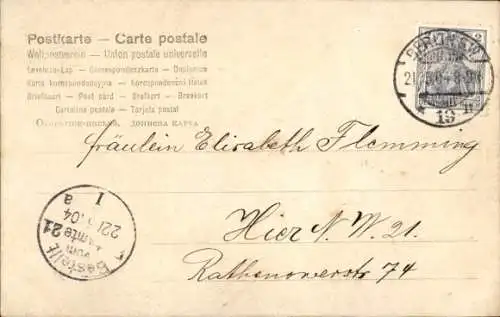 Postkarte — Carte postale
Weltpostverein — Union postale universelle
Levelezö-Lap — Correspondenzkarte — Dopisnice
Karta korespondencyjna — Korespondenčni listek
Briefkaart — Post card — Brefkort — Brevkort
Cartolina postale — Tarjeta postal
Открытое письмо, дописна карта
BERLIN S.W.
19
Fräulein Elisabeth Flemming
Hier N.W. 21.
Rathenowerstr 74
Bestellt
vom
Postamte 21
22/ .04
I a